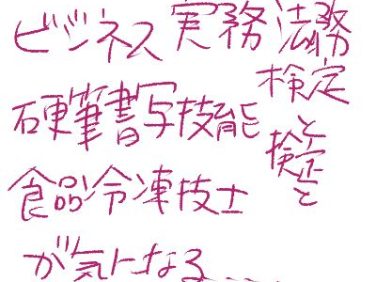 ビジネス実務法務
検定と
硬筆書写技能
検定と
食品冷凍技士
が気になる……